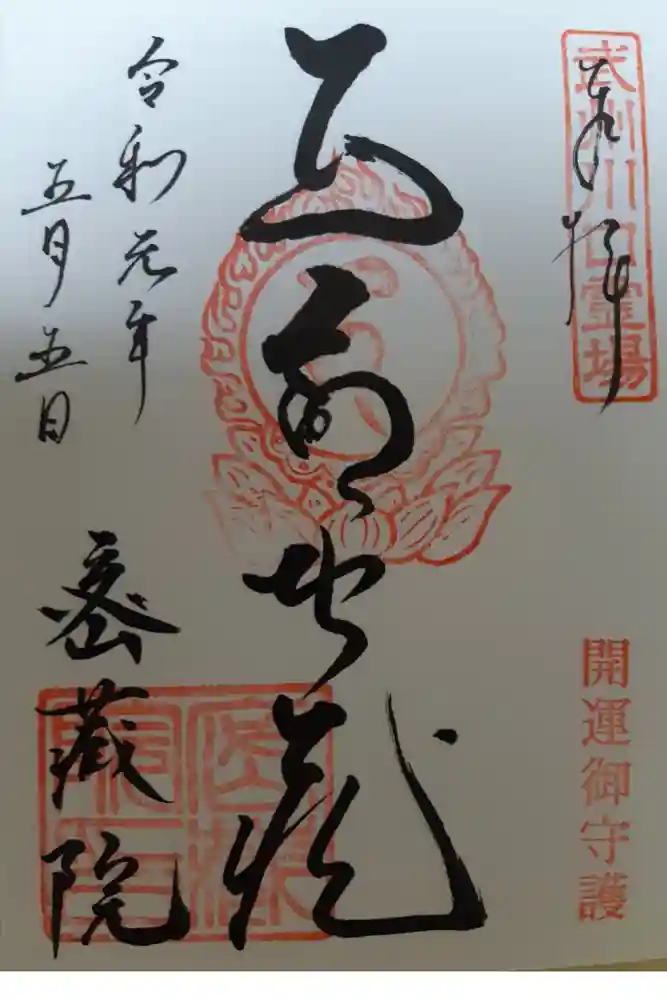 武州川口霊場
奉拝
開運御守護
延命地蔵
令和元年
五月五日
密蔵院